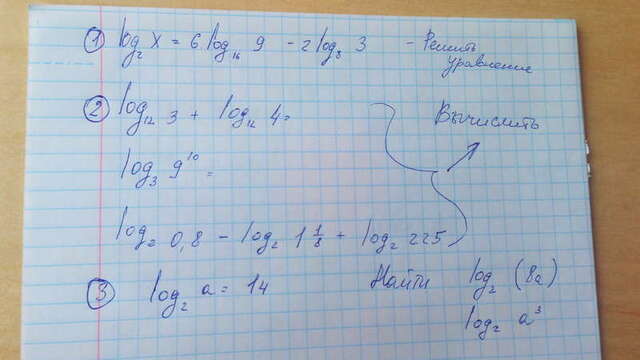 ① log₂ x = 6 log₁₆ 9 - 2 log₈ 3 - Решить уравнение
② log₁₂ 3 + log₁₂ 4 =
Вычислить
log₃ 9¹⁰ =
log₂ 0,8 - log₂ 1 1/8 + log₂ 225
③ log₂ a = 14 Найти log₂ (8a)
log₂ a³